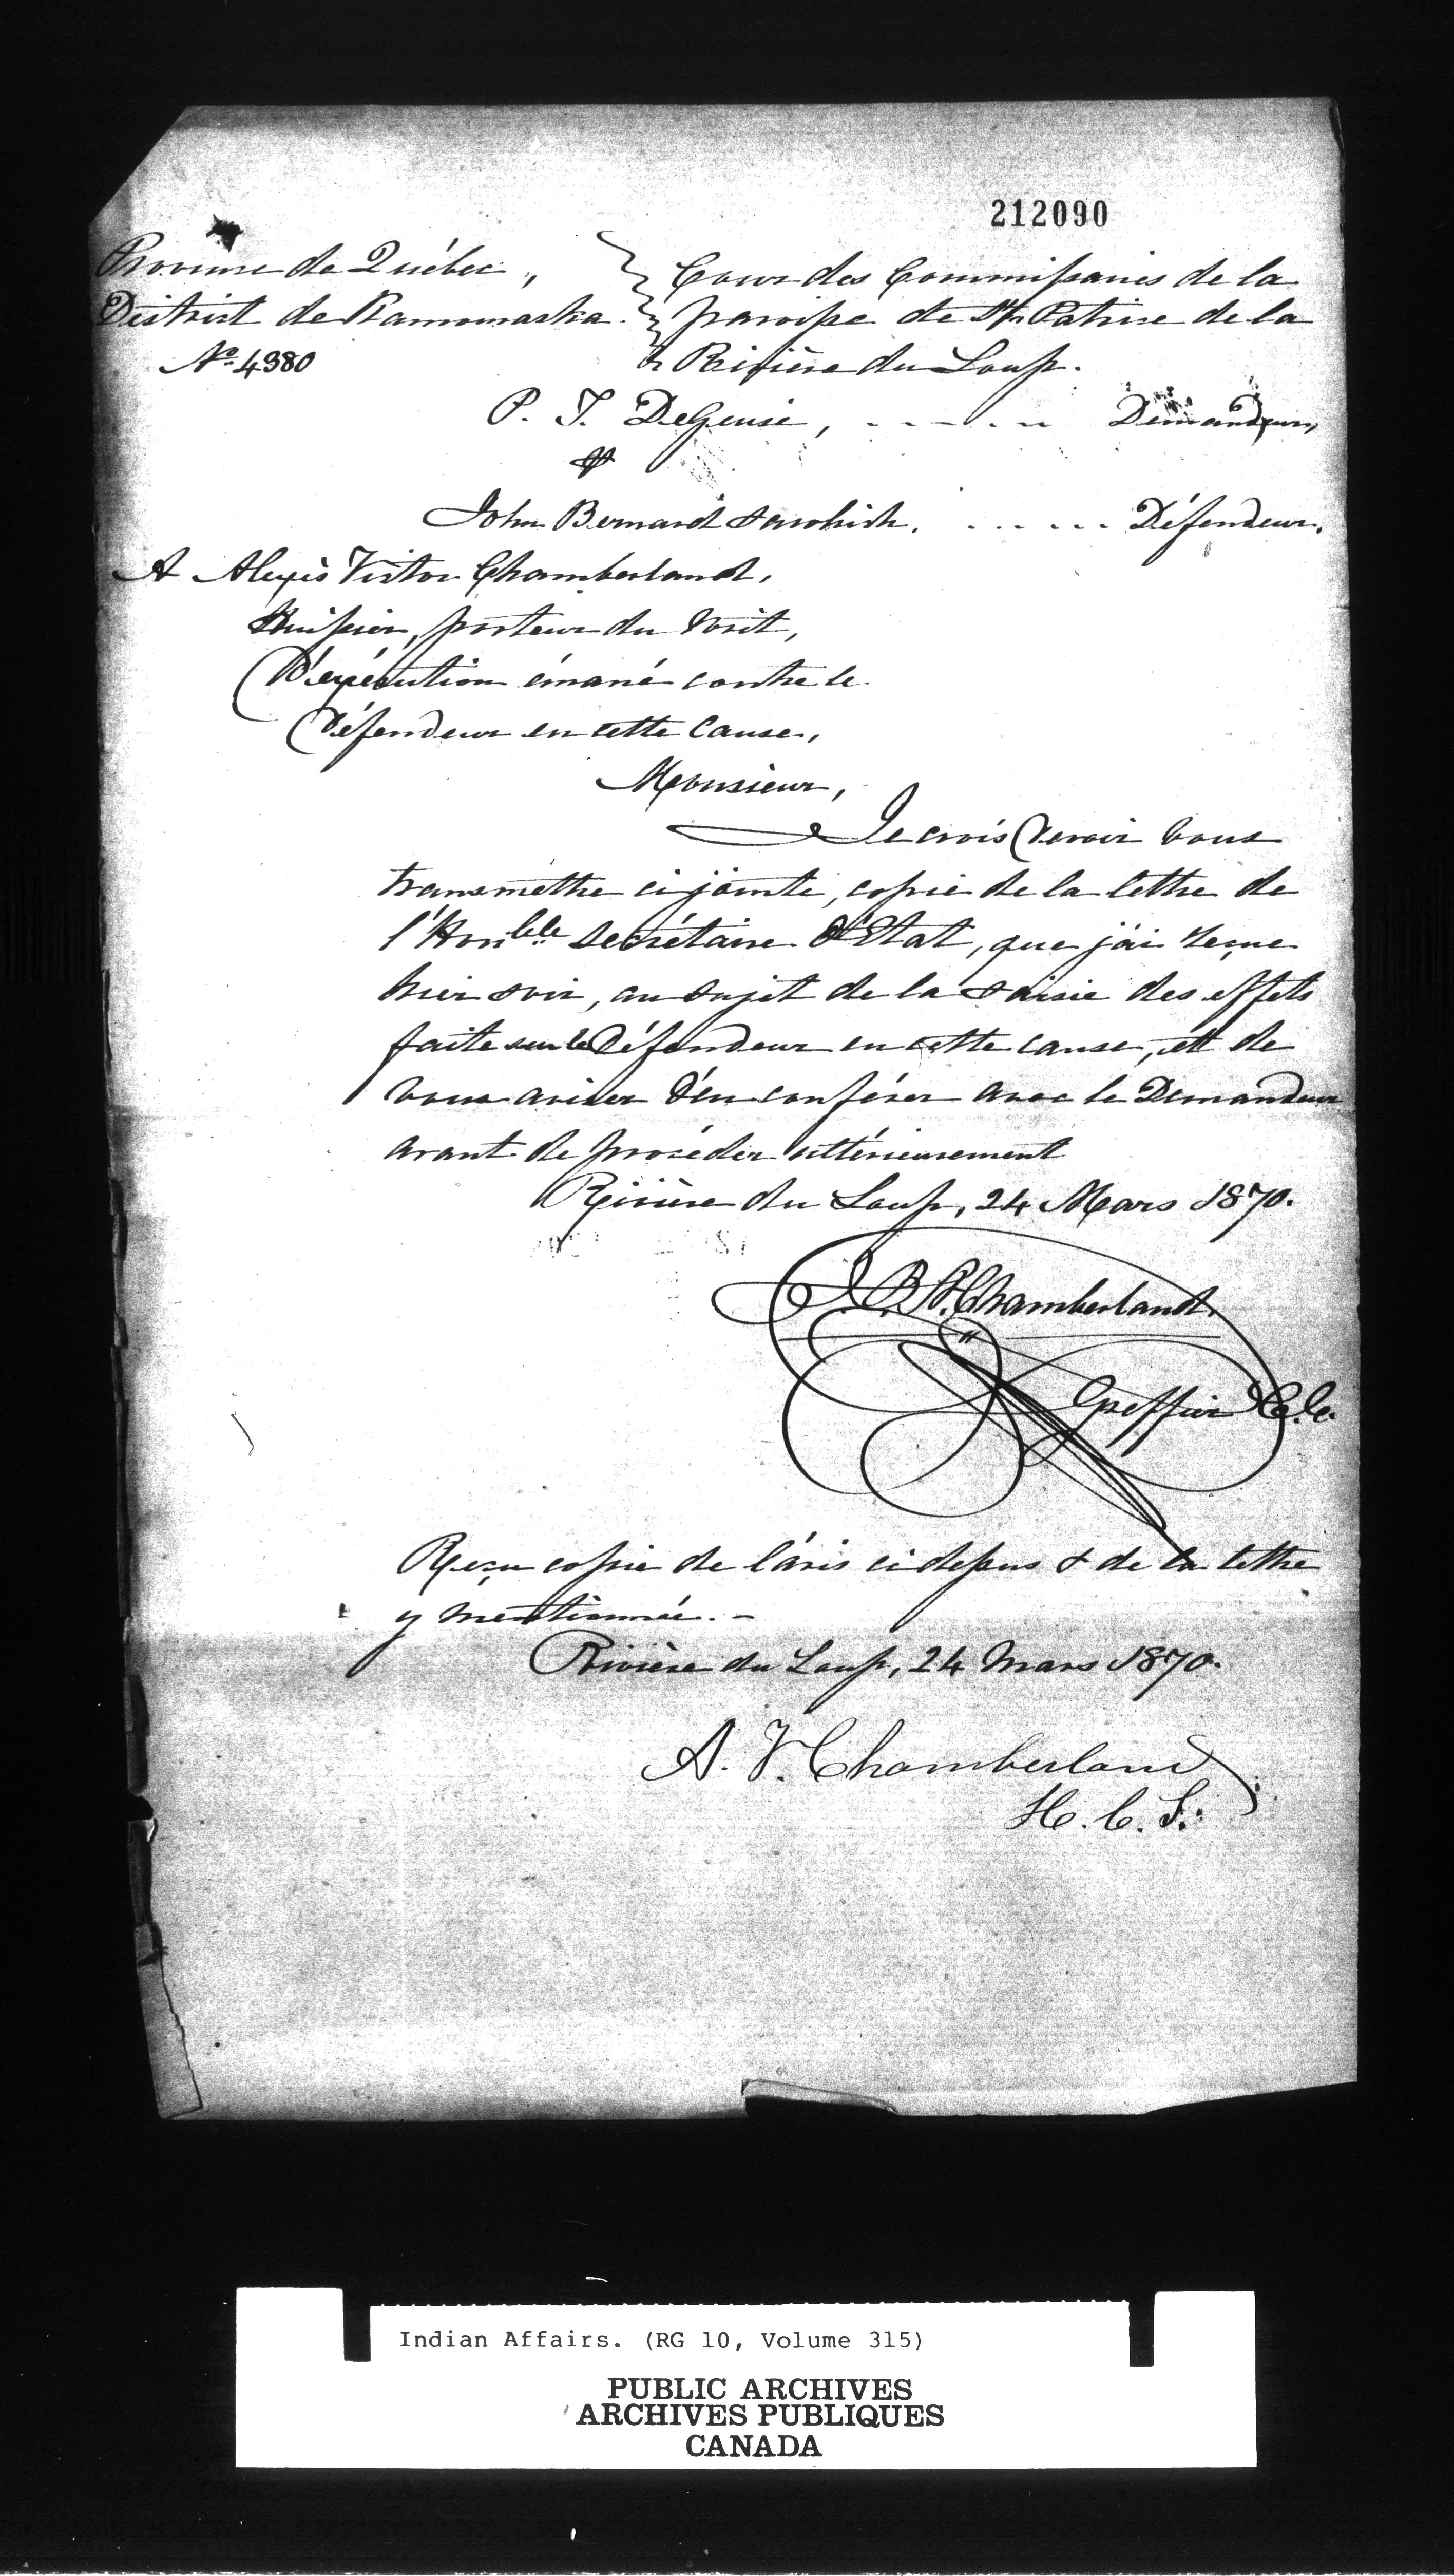 212090
Province de Québec,
District de Kamouraska.
No. 4980
Cour des Commissaires de la
paroisse de St. Patrice de la
Rivière du Loup.
P. T. DeGuise, ..... Demandeur,
&
John Bernard ..... Défendeur.
A Alexis Victor Chamberland,
Huissier, porteur du Writ,
D'exécution émané contre le
Défendeur en cette cause,
Monsieur,
Je crois devoir vous
transmettre ci jointe, copie de la lettre de
l'Honble Secrétaire d'Etat, que j'ai reçue
hier soir, au sujet de la saisie des effets
faite sur le Défendeur en cette cause, et de
vous aviser d'en conférer avec le Demandeur
avant de procéder ultérieurement
Rivière du Loup, 24 Mars 1870.
J. B. Chamberland.
Greffier C.C.
Reçu copie de l'avis ci dessus & de la lettre
y mentionnée. -
Rivière du Loup, 24 Mars 1870.
A. V. Chamberland
H. C. S.
Indian Affairs. (RG 10, Volume 315)
PUBLIC ARCHIVES
ARCHIVES PUBLIQUES
CANADA